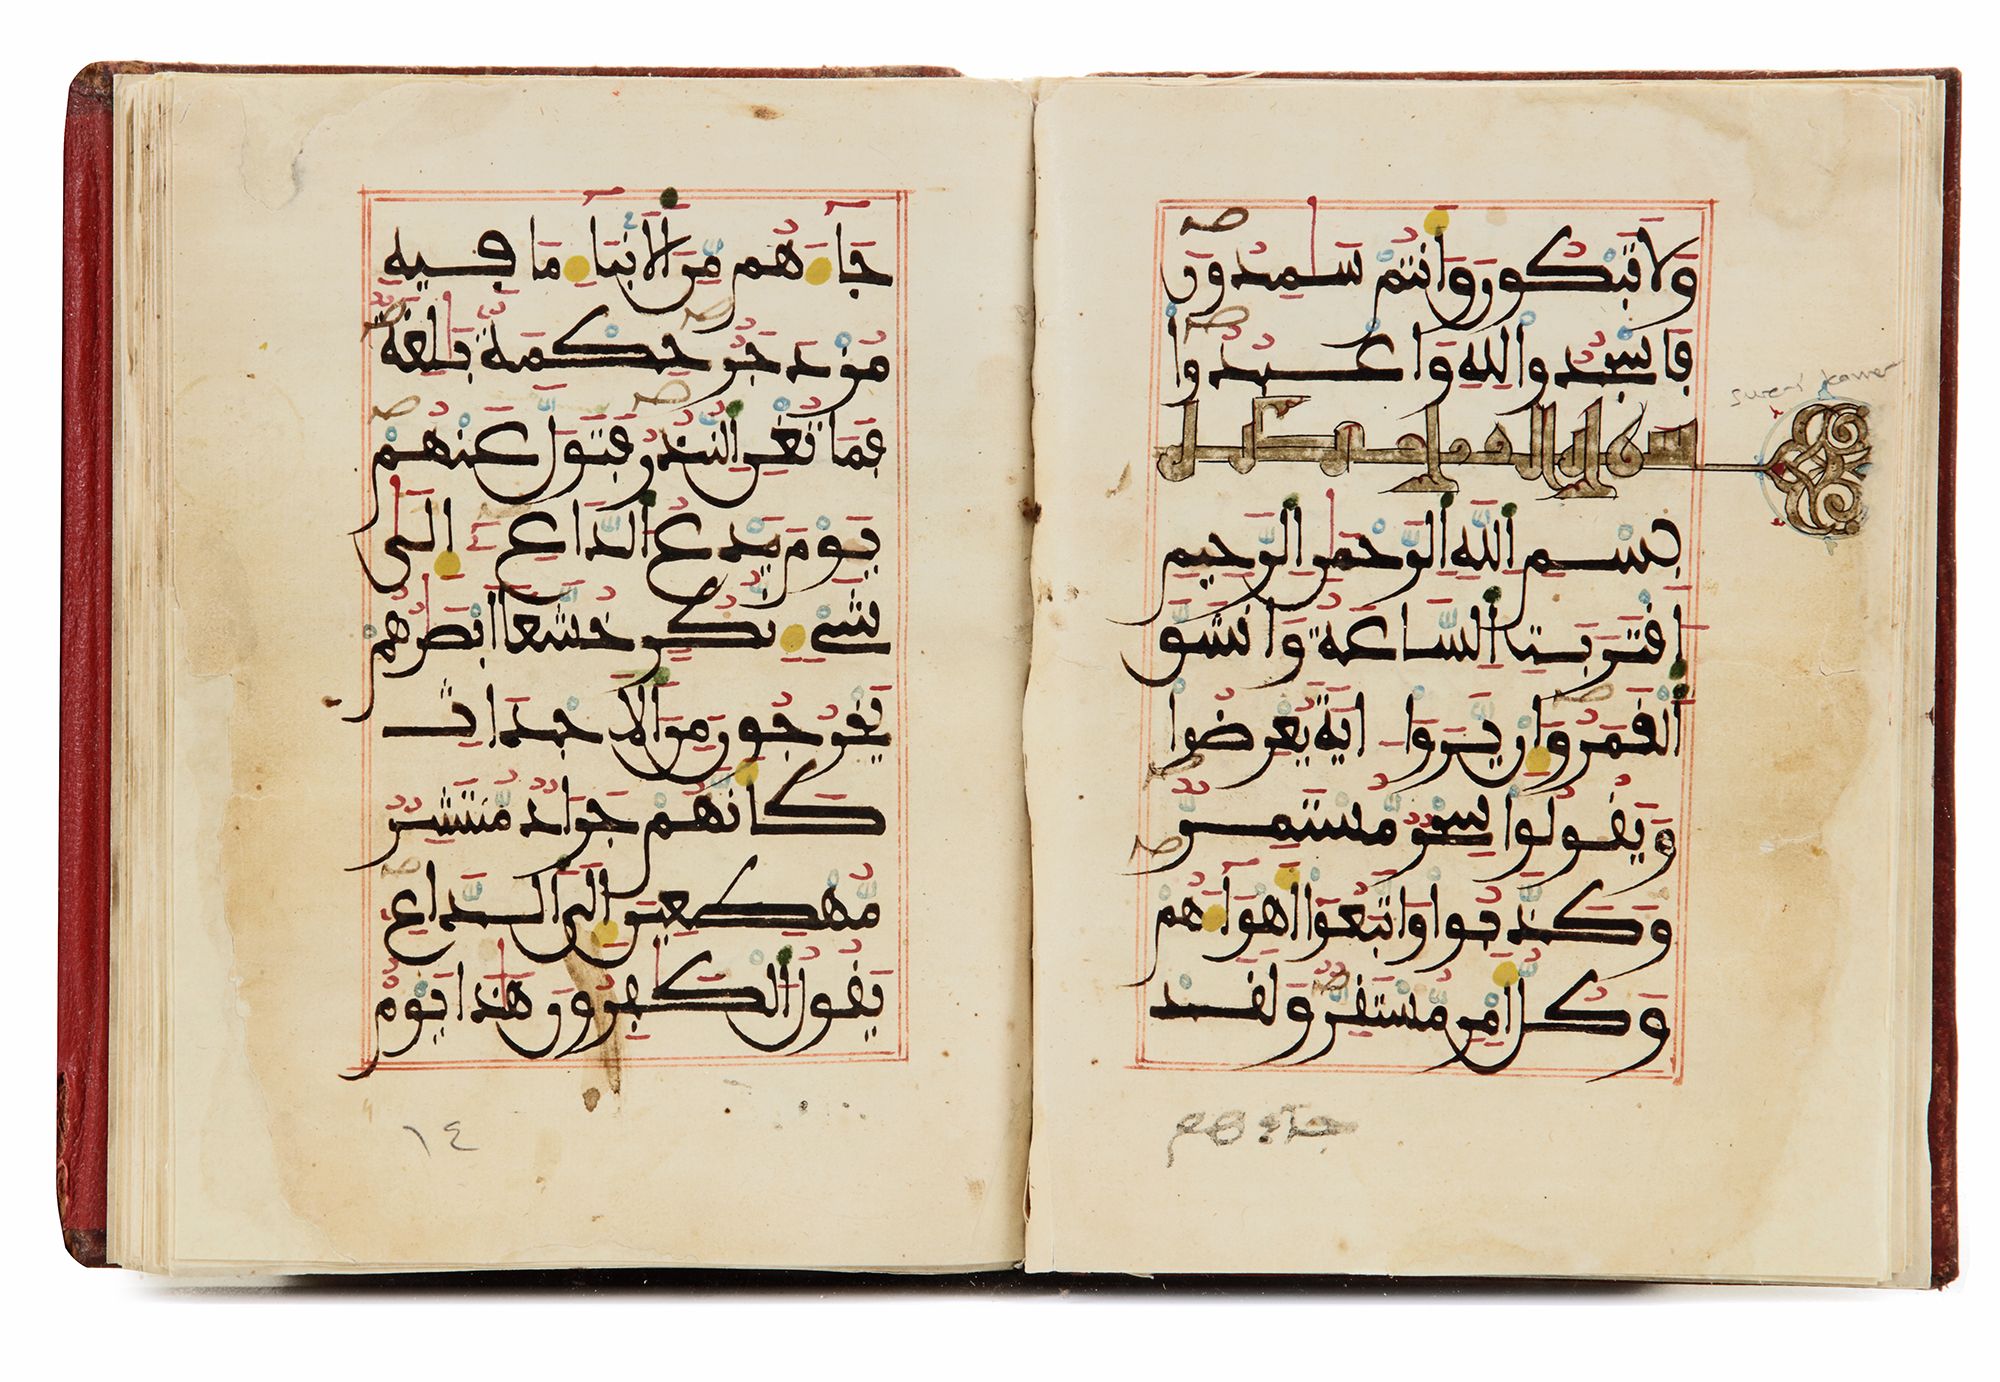 وَلَا تَبْكُونَ وَأَنتُمْ سَٰمِدُونَ
فَاسْجُدُوا لِلهِ وَاعْبُدُوا
surei kamer
بِسْمِ اللَّهِ الرَّحْمَٰنِ الرَّحِيمِ
اقْتَرَبَتِ السَّاعَةُ وَانشَقَّ
الْقَمَرُ وَإِن يَرَوْا ءَايَةً يُعْرِضُوا
وَيَقُولُوا سِحْرٌ مُّسْتَمِرٌّ
وَكَذَّبُوا وَاتَّبَعُوا أَهْوَآءَهُمْ
وَكُلُّ أَمْرٍ مُّسْتَقِرٌّ وَلَقَدْ
جاءهم
جَآءَهُم مِّنَ الْأَنۢبَآءِ مَا فِيهِ
مُزْدَجَرٌ حِكْمَةٌ بَٰلِغَةٌ
فَمَا تُغْنِ النُّذُرُ فَتَوَلَّ عَنْهُمْ
يَوْمَ يَدْعُ الدَّاعِ إِلَىٰ
شَيْءٍ نُّكُرٍ خُشَّعًا أَبْصَٰرُهُمْ
يَخْرُجُونَ مِنَ الْأَجْدَاثِ
كَأَنَّهُمْ جَرَادٌ مُّنتَشِرٌ
مُّهْطِعِينَ إِلَى الدَّاعِ
يَقُولُ الْكَٰفِرُونَ هَٰذَا يَوْمٌ
١٤